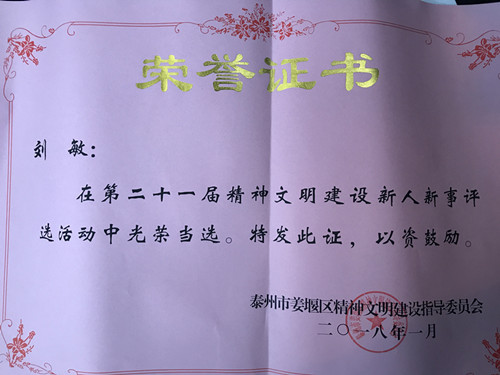 荣誉证书
刘 敏：
在第二十一届精神文明建设新人新事评
选活动中光荣当选。特发此证，以资鼓励。
泰州市姜堰区精神文明建设指导委员会
二〇一八年一月